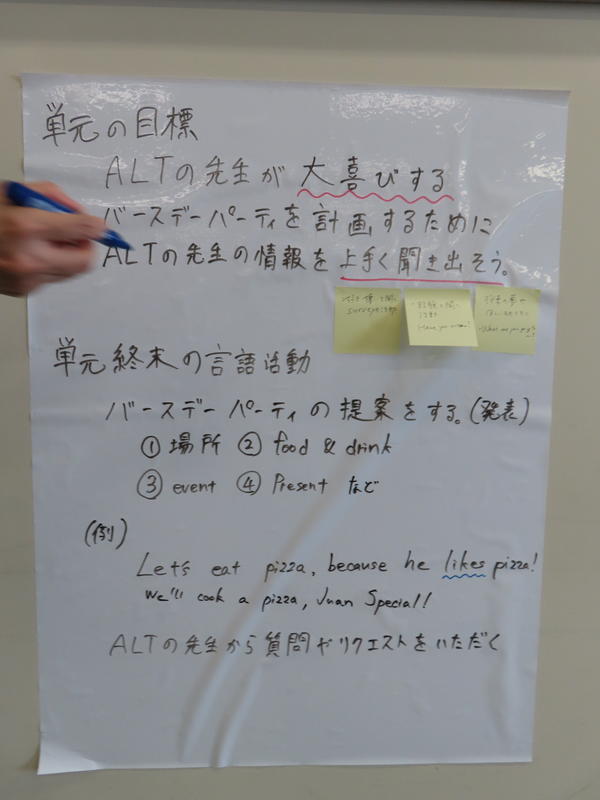 単元の目標
ALTの先生が大喜びする
バースデーパーティを計画するために
ALTの先生の情報を上手く聞き出そう。
survey活動
活動
Have you
単元終末の言語活動
バースデーパーティの提案をする。(発表)
① 場所 ② food & drink
③ event ④ Present など
(例)
Let's eat pizza, because he likes pizza!
We'll cook a pizza, Juan Special!
ALTの先生から質問やリクエストをいただく